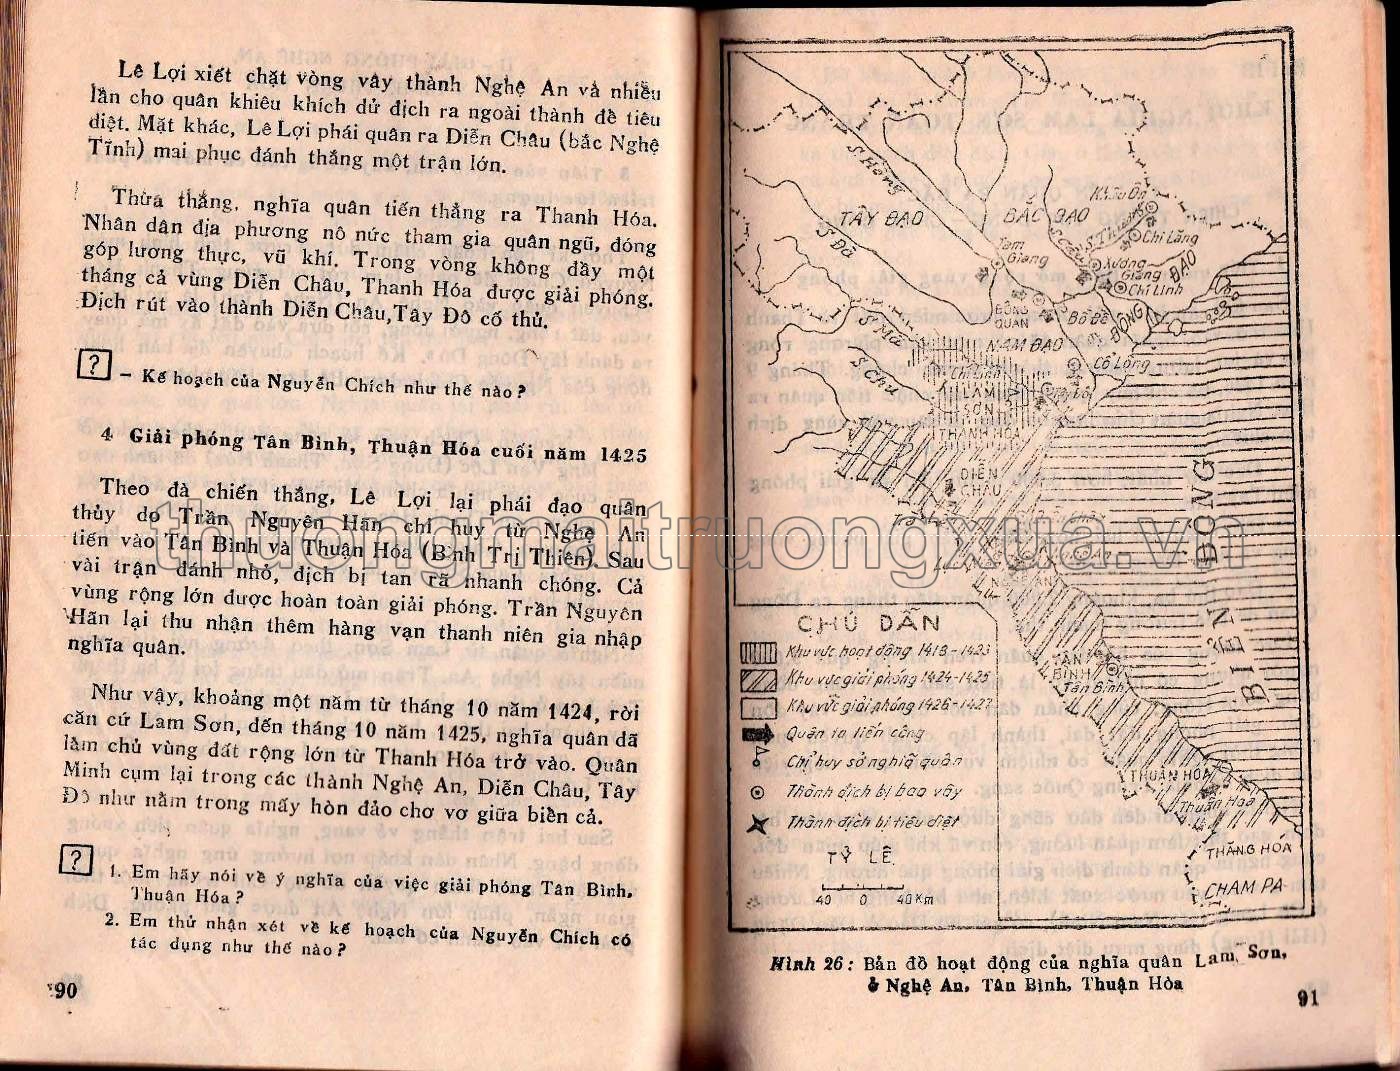 Lê Lợi xiết chặt vòng vây thành Nghệ An và nhiều
lần cho quân khiêu khích dử địch ra ngoài thành để tiêu
diệt. Mặt khác, Lê Lợi phái quân ra Diễn Châu (bắc Nghệ
Tĩnh) mai phục đánh thắng một trận lớn.
Thừa thắng, nghĩa quân tiến thẳng ra Thanh Hóa.
Nhân dân địa phương nô nức tham gia quân ngũ, đóng
góp lương thực, vũ khí. Trong vòng không đầy một
tháng cả vùng Diễn Châu, Thanh Hóa được giải phóng.
Địch rút vào thành Diễn Châu, Tây Đô cố thủ.
? – Kế hoạch của Nguyễn Chích như thế nào?
4 Giải phóng Tân Bình, Thuận Hóa cuối năm 1425
Theo đà chiến thắng, Lê Lợi lại phái đạo quân
thủy do Trần Nguyên Hãn chỉ huy từ Nghệ An
tiến vào Tân Bình và Thuận Hóa (Bình Trị Thiên). Sau
vài trận đánh nhỏ, địch bị tan rã nhanh chóng. Cả
vùng rộng lớn được hoàn toàn giải phóng. Trần Nguyên
Hãn lại thu nhận thêm hàng vạn thanh niên gia nhập
nghĩa quân.
Như vậy, khoảng một năm từ tháng 10 năm 1424, rời
căn cứ Lam Sơn, đến tháng 10 năm 1425, nghĩa quân đã
làm chủ vùng đất rộng lớn từ Thanh Hóa trở vào. Quân
Minh cụm lại trong các thành Nghệ An, Diễn Châu, Tây
Đô như nằm trong mấy hòn đảo chơ vơ giữa biển cả.
? 1. Em hãy nói về ý nghĩa của việc giải phóng Tân Bình,
Thuận Hóa?
2. Em thử nhận xét về kế hoạch của Nguyễn Chích có
tác dụng như thế nào?
90
thuongmaitruongxua.vn
S Hồng
TÂY ĐẠO
S Đà
BẮC ĐẠO
Khâu Ôn
S Thương
S Cầu
Chi Lăng
Tam
Giang
Xương
Giang
Chí Linh
ĐÔNG ĐẠO
ĐÔNG
QUAN
Bồ Đề
NAM ĐẠO
Cổ Lộng
S Mã
S Chu
Chí Linh
LAM
SƠN
Tây Đô
THANH HÓA
DIỄN
CHÂU
BIỂN ĐÔNG
TÂN
BÌNH
Tân Bình
THUẬN HÓA
Thuận Hoá
THĂNG HÓA
CHAM PA
CHÚ DẪN
Khu vực hoạt động 1418-1423
Khu vực giải phóng 1424-1425
Khu vực giải phóng 1426-1427
Quân ta tiến công
Chỉ huy sở nghĩa quân
Thành địch bị bao vây
Thành địch bị tiêu diệt
TỶ LỆ
40 0 40 Km
Hình 26: Bản đồ hoạt động của nghĩa quân Lam Sơn,
ở Nghệ An, Tân Bình, Thuận Hòa
91